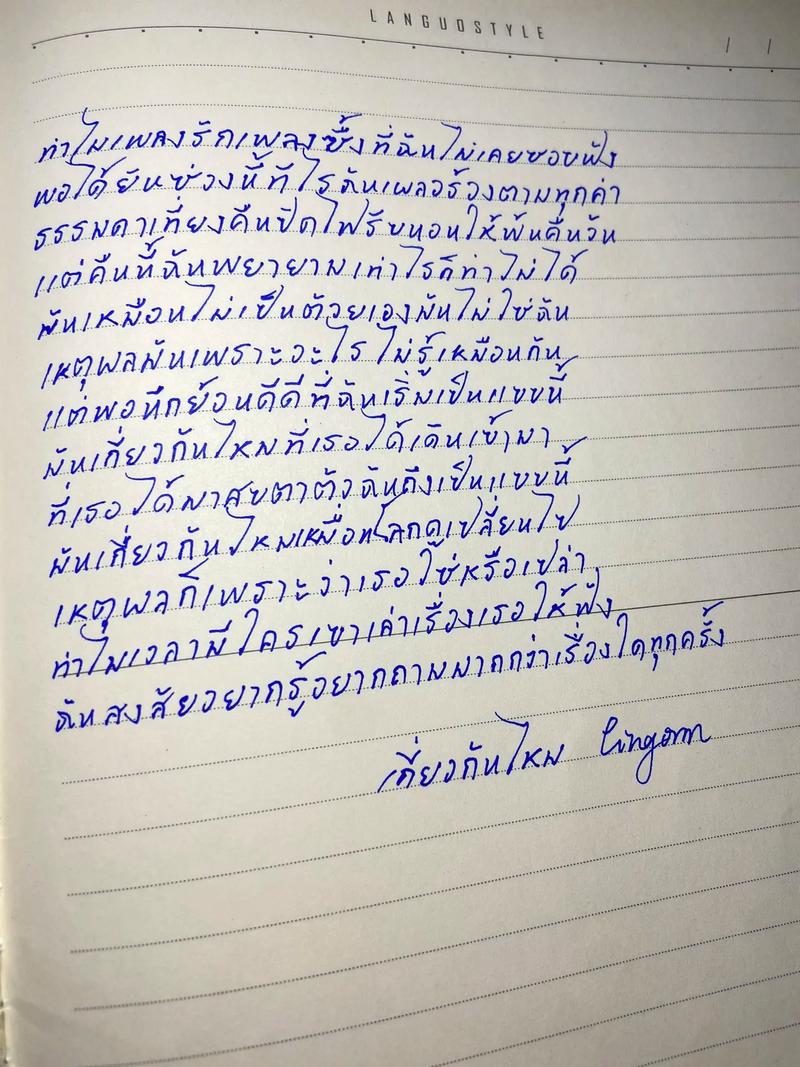 LANGUOSTYLE
/ /
ทำไมเพลงรักเพลงซึ้งที่ฉันไม่เคยชอบฟัง
พอได้ยินช่วงนี้ทีไรฉันเผลอร้องตามทุกคำ
ธรรมดาเที่ยงคืนปิดไฟรีบนอนให้พ้นคืนวัน
แต่คืนนี้ฉันพยายามเท่าไรก็ทำไม่ได้
มันเหมือนไม่เป็นตัวเองมันไม่ใช่ฉัน
เหตุผลมันเพราะอะไรไม่รู้เหมือนกัน
แต่พอนึกย้อนดีดีที่ฉันเริ่มเป็นแบบนี้
มันเกี่ยวกันไหมที่เธอได้เดินเข้ามา
ที่เธอได้มาสบตาตัวฉันถึงเป็นแบบนี้
มันเกี่ยวกันไหมเหมือนโลกดูเปลี่ยนไป
เหตุผลก็เพราะว่าเธอใช่หรือเปล่า
ทำไมเวลามีใครเขาเล่าเรื่องเธอให้ฟัง
ฉันสงสัยอยากรู้อยากถามมากกว่าเรื่องใดทุกครั้ง
เกี่ยวกันไหม lingorm